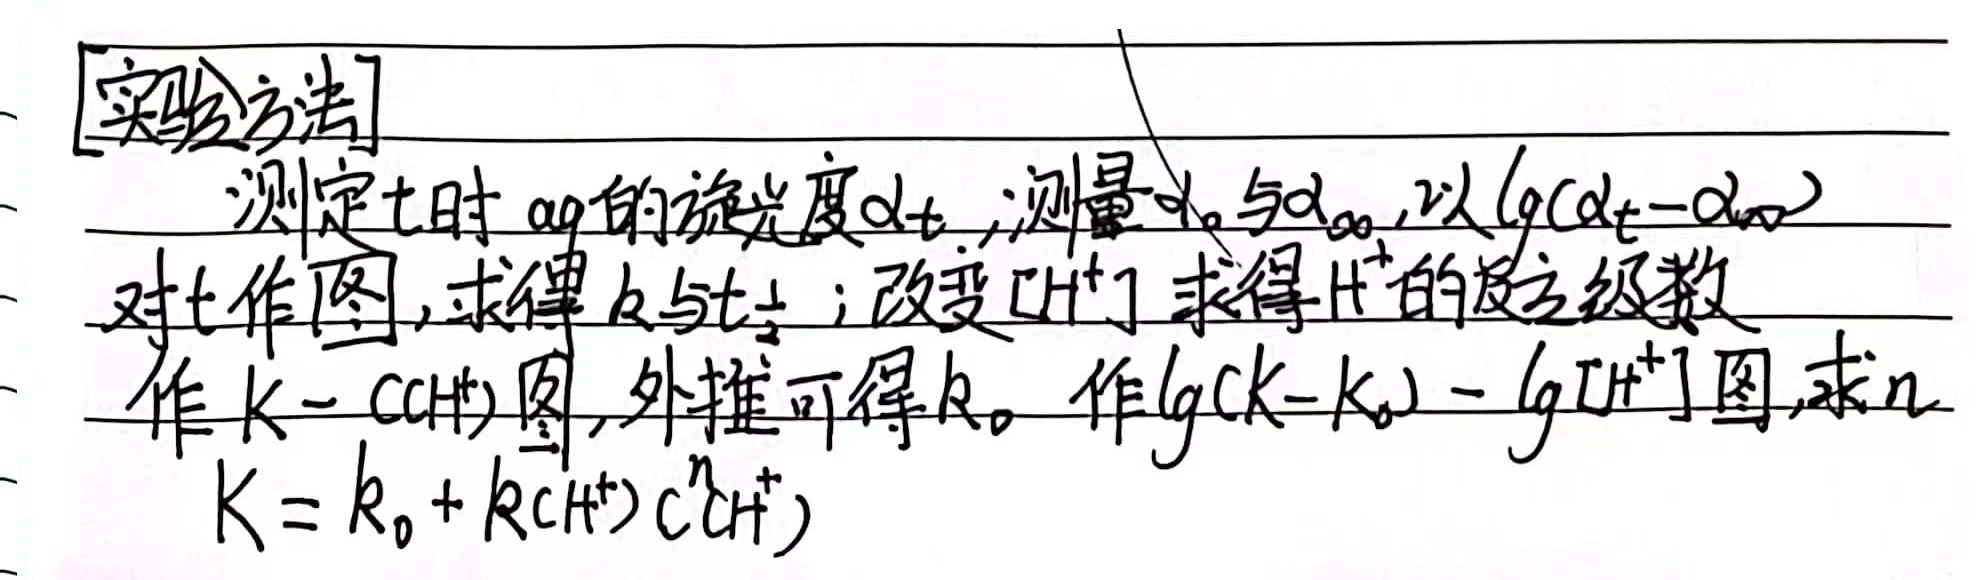 [实验方法]
测定t时 aq的旋光度αt,测量α₀与α∞,以lg(αt-α∞)
对t作图,求得k与t½;改变[H⁺]求得H⁺的反应级数
作 K - C(H⁺)图,外推可得k₀ 作lg(K-K₀) - lg[H⁺]图,求n
K = k₀ + k(H⁺) Cⁿ(H⁺)